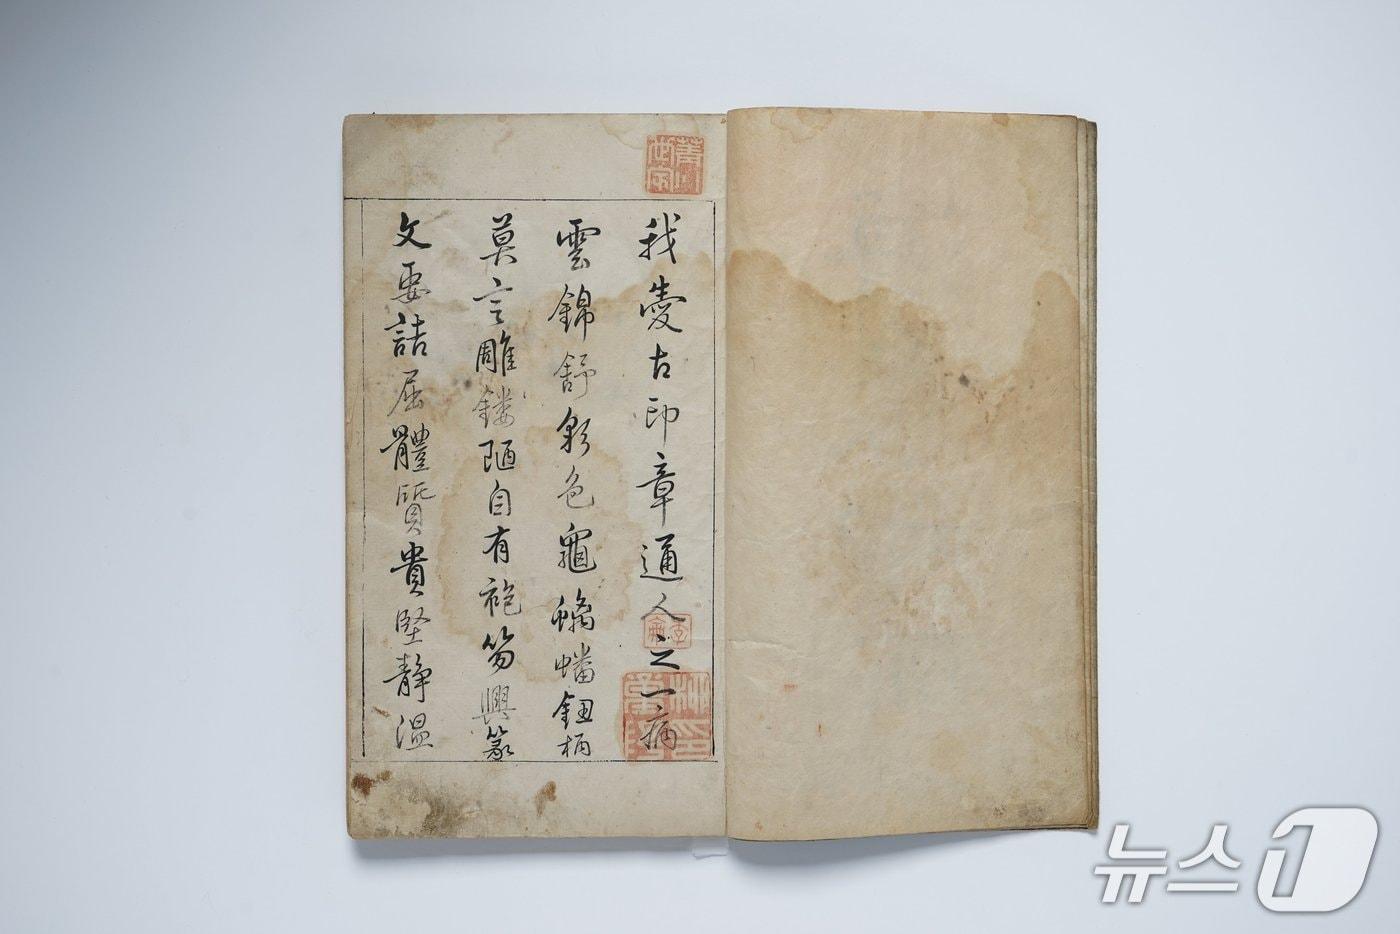 我愛古印章通人之一病
雲錦舒彩色龜螭蟠鈕柄
莫言雕鏤陋自有袍笏興篆
文要詰屈體質貴堅靜溫
뉴스1